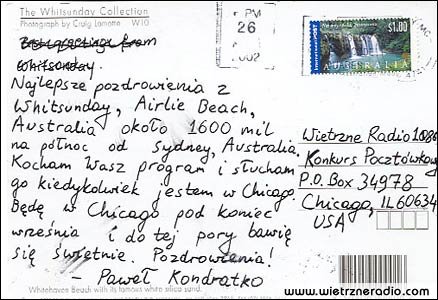 The Whitsunday Collection
Photograph by Craig Lamotte W10
PM
26
2002
$1.00
AUSTRALIA
from
Whitsunday.
Najlepsze pozdrowienia z
Whitsunday, Airlie Beach,
Australia około 1600 mil
na północ od Sydney, Australia.
Kocham Wasz program i słucham
go kiedykolwiek jestem w Chicago.
Będę w Chicago pod koniec
września i do tej pory bawię
się świetnie. Pozdrowienia!
- Paweł Kondratko
Wietrzne Radio 1080
Konkurs Pocztówkowy
P.O. Box 34978
Chicago, IL 60634
USA
Whitehaven Beach with its famous white silica sand.
www.wietrzneradio.com